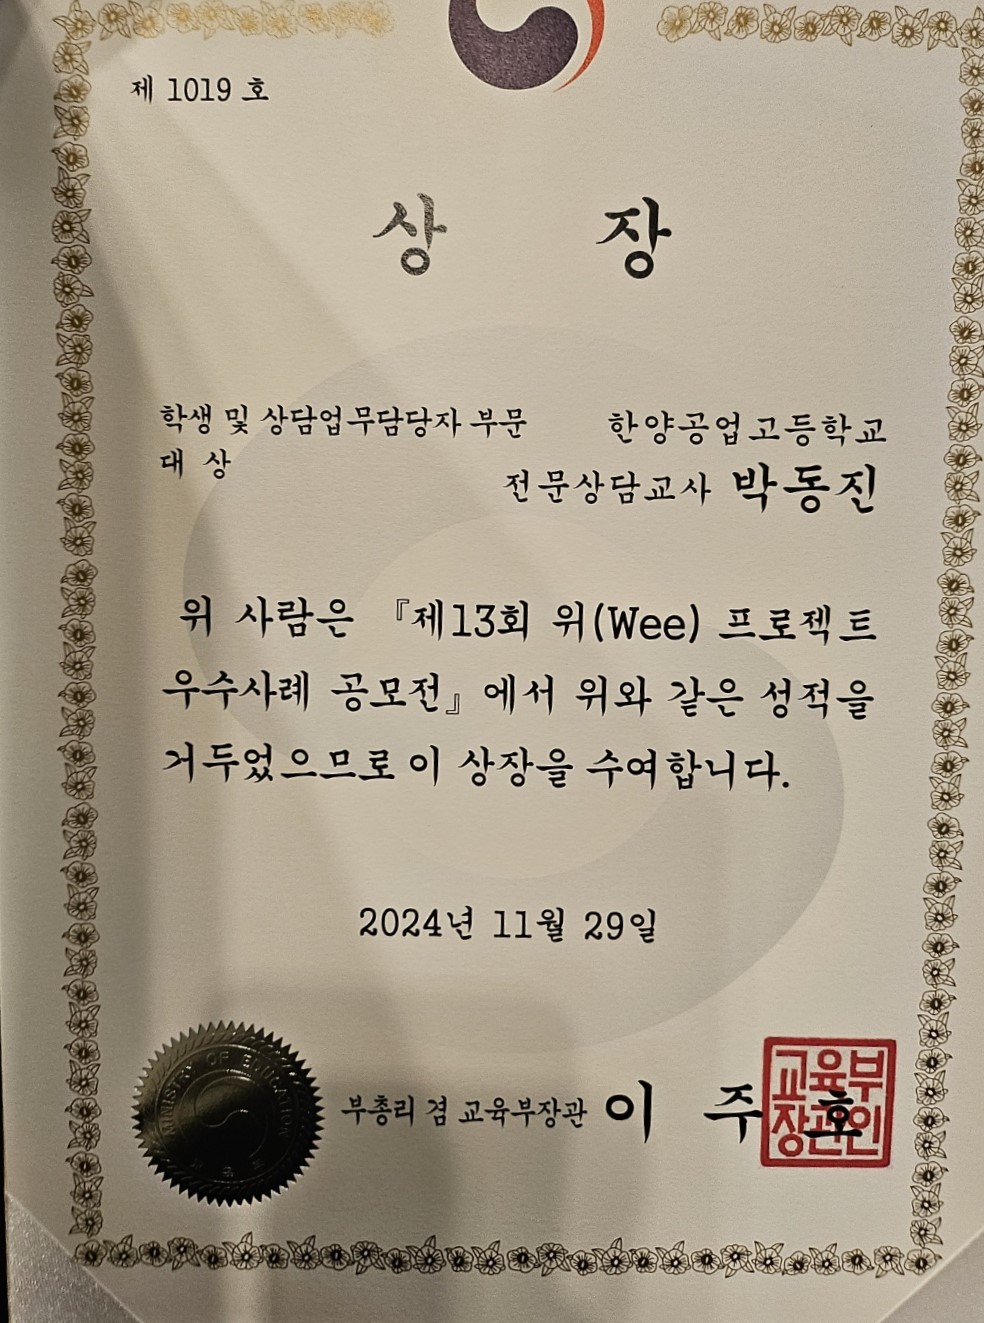 제 1019 호
상 장
학생 및 상담업무담당자 부문 한양공업고등학교
대 상
전문상담교사 박동진
위 사람은 『제13회 위(Wee) 프로젝트
우수사례 공모전』에서 위와 같은 성적을
거두었으므로 이 상장을 수여합니다.
2024년 11월 29일
MINISTRY OF EDUCATION
교육부
부총리 겸 교육부장관 이 주 호
교육부
장관인